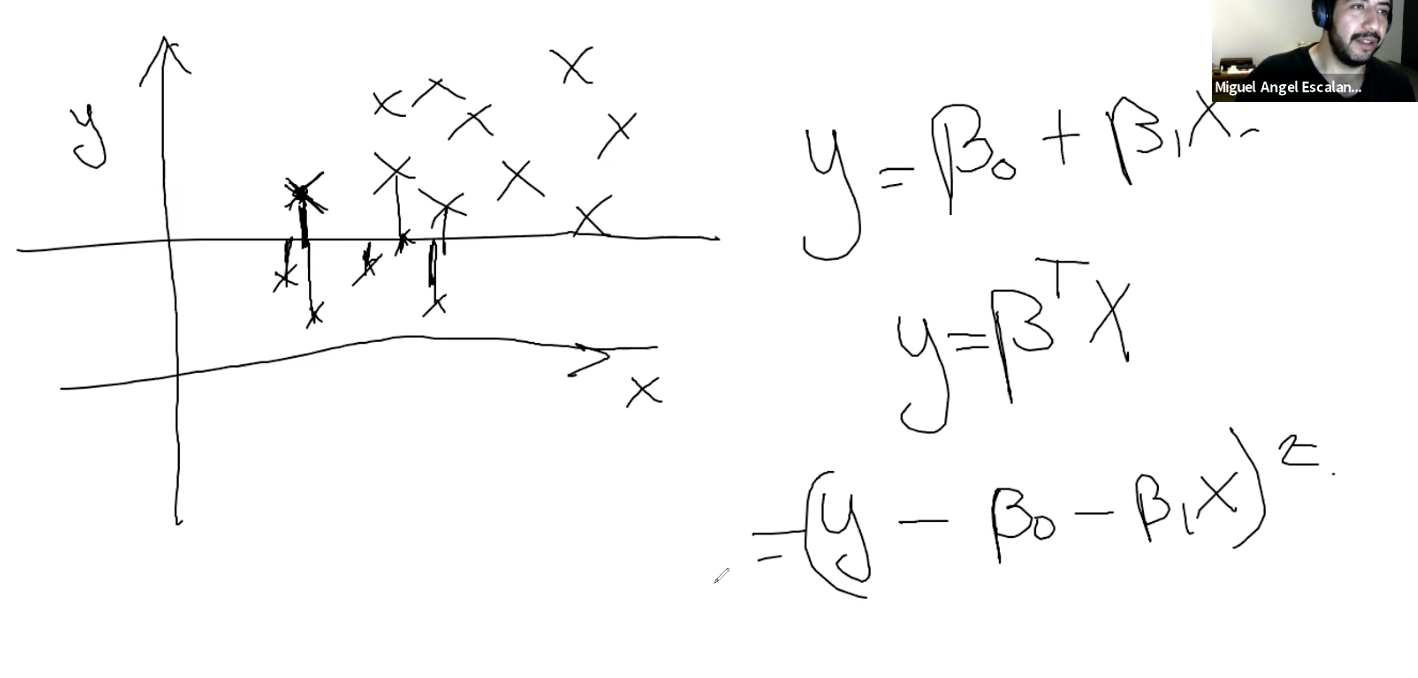 Miguel Angel Escalan...
y
y = β₀ + β₁X
y = βᵀX
x
= (y - β₀ - β₁X)²